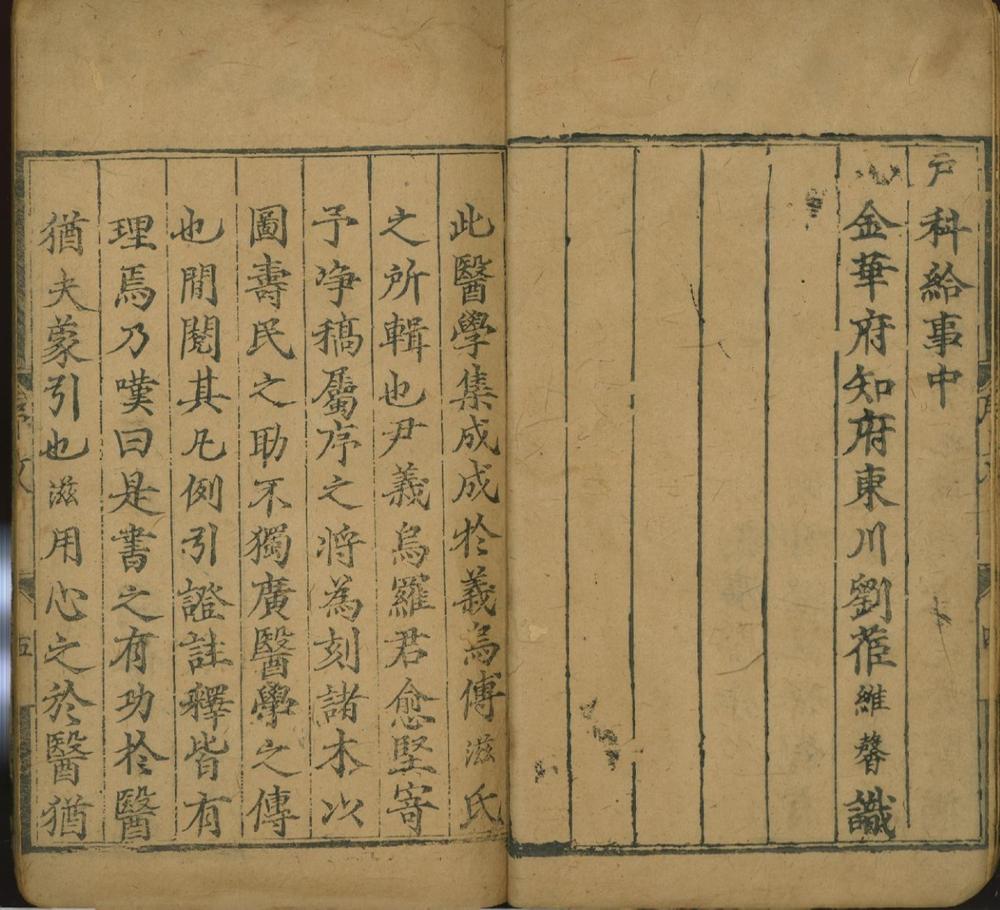 戶科給事中
金華府知府東川劉茝維馨識
此醫學集成成於義烏傅滋氏
之所輯也尹義烏羅君愈堅寄
予净稿屬序之将為刻諸木以
圖壽民之助不獨廣醫學之傳
也閒閱其凡例引證註釋皆有
理焉乃嘆曰是書之有功於醫
猶夫蒙引也滋用心之於醫猶
五